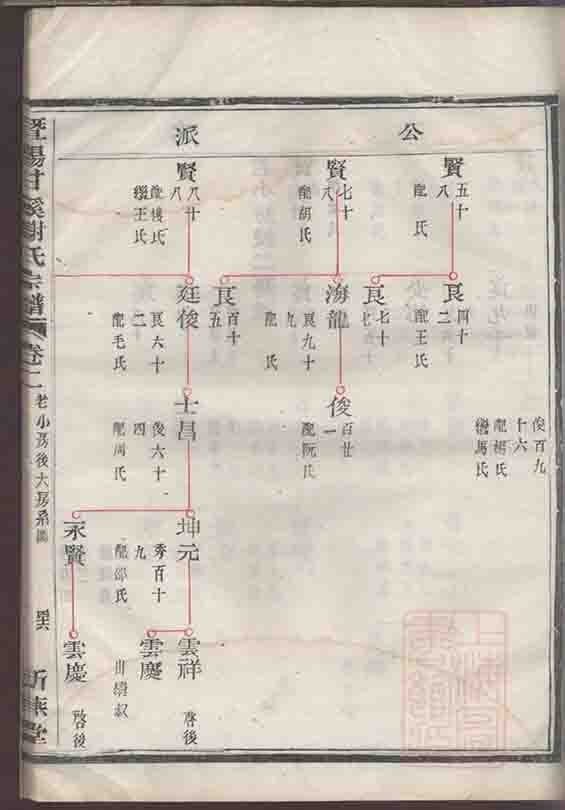 公派
賢
五十
八
配 氏
賢
七十
八
配胡氏
賢
八十
八
配樓氏
繼王氏
良
四十
二
配王氏
良
七十
良
百十
五
海龍
良九十
九
配 氏
廷俊
良六十
二
配毛氏
俊百九
十六
配楊氏
繼馬氏
俊
百廿
一
配阮氏
士昌
俊六十
四
配周氏
坤元
秀百十
九
配邵氏
永賢
雲祥
啓後
雲慶
出繼叔
雲慶
啓後
暨陽甘溪謝氏宗譜
卷二
老小房後大房系圖